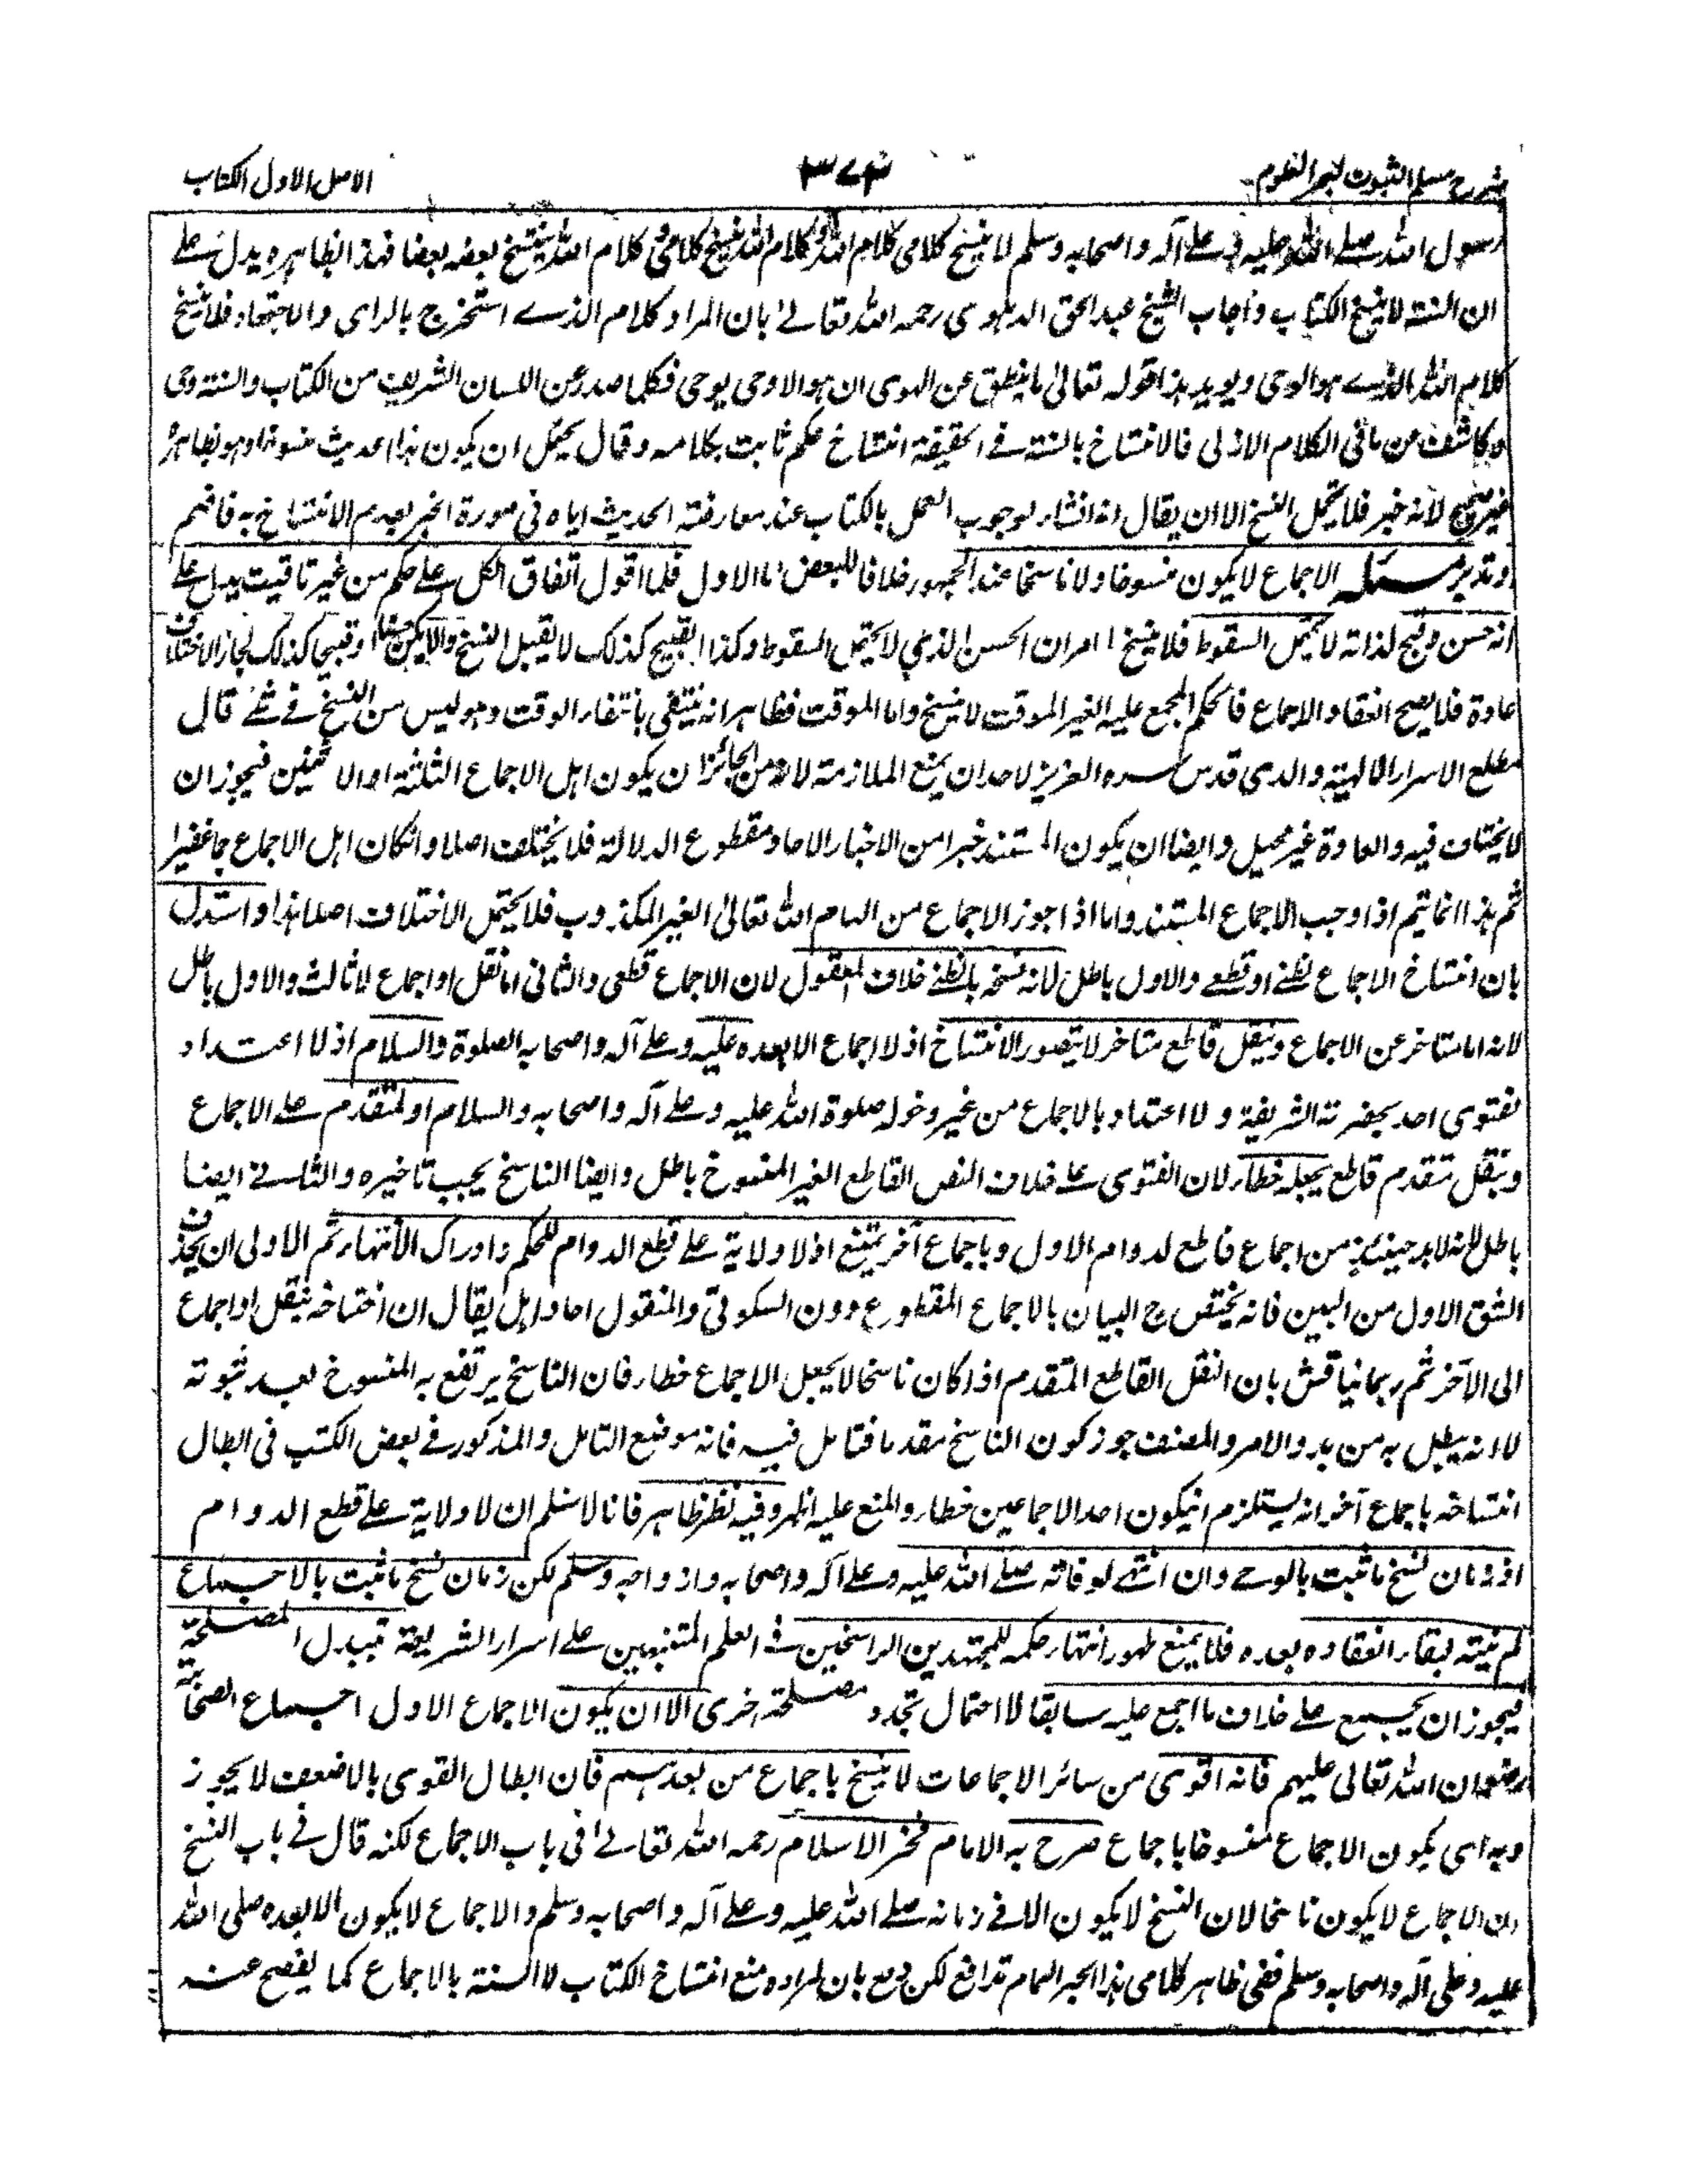 شرح مسلم الثبوت لبحر العلوم
٣٧٤
الاصل الاول الكتاب
رسول الله صلے الله عليه و علے آله و اصحابه وسلم لا ينسخ كلامی كلام الله و كلام الله ينسخ كلامی و كلام الله ينسخ بعضه بعضا فهذا بظاهره يدل علے
ان السنة لا ينسخ الكتاب و اجاب الشيخ عبد الحق الدهلوی رحمه الله تعالےٰ بان المراد كلام الذے استخرج بالرای والاجتهاد فلا ينسخ
كلام الله الذے هو الوحی و يويد هذا قوله تعالیٰ ما ينطق عن الهوی ان هو الا وحی يوحی فكلما صدر عن اللسان الشريف من الكتاب والسنة وحی
و كاشف عن ما فی الكلام الازلی فالانتساخ بالسنة فے الحقيقة انتساخ حكم ثابت بكلامه وقال يحتمل ان يكون هذا الحديث منسوخا و هو بظاهره
غير صحيح لانه خبر فلا يحتمل النسخ الا ان يقال انه انشاء لوجوب العمل بالكتاب عند معارضة الحديث اياه فی صورة الخبر بعدم الانتساخ به فافهم
و تدبر مسئله الاجماع لا يكون منسوخا ولا ناسخا عند الجمهور خلافا للبعض اما الاول فلما اقول اتفاق الكل علے حكم من غير تاقيت يدل علے
انه حسن وقبيح لذاته لا يحتمل السقوط فلا ينسخ اما مر ان الحسن الذي لا يحتمل السقوط وكذا القبيح كذلك لا يقبل النسخ والا يكن حسنا او قبيحا كذلك لجاز الاختلاف
عادة فلا يصح انعقاد الاجماع فالحكم المجمع عليه الغير الموقت لا ينسخ واما الموقت فظاهر انه ينتفی بانتفاء الوقت وهو ليس من النسخ فے شئ قال
مطلع الاسرار الالهية والدی قدس سره العزيز لاحد ان يمنع الملازمة لانه من الجائز ان يكون اهل الاجماع الثلثة او الاثنين فيجوز ان
لا يختلف فيه والعادة غير محيل وايضا ان يكون المستند خبرا من الاخبار الاحاد مقطوع الدلالة فلا يختلف اصلا وان كان اهل الاجماع جما غفيرا
ثم هذا انما يتم اذا وجب الاجماع المستند واما اذا جوز الاجماع من الهام الله تعالیٰ الغير المكذوب فلا يحتمل الاختلاف اصلا هذا واستدل
بان انتساخ الاجماع بظنے او قطعے والاول باطل لانه نسخ بالظنے خلاف المعقول لان الاجماع قطعی والثانی اما نقل او اجماع لا ثالث والاول باطل
لانه اما متاخر عن الاجماع وبنقل قاطع متاخر لا يتصور الانتساخ اذ لا اجماع الا بعده عليه وعلے آله واصحابه الصلوة والسلام اذ لا اعتداد
بفتوی احد بحضرته الشريفة ولا اعتداد بالاجماع من غير دخوله صلوة الله عليه وعلے آله واصحابه والسلام او متقدم علے الاجماع
وبنقل متقدم قاطع يجعله خطاء لان الفتوی علے خلاف النص القاطع الغير المنسوخ باطل وايضا الناسخ يجب تاخيره والثانے ايضا
باطل لانه لا بد حينئذ من اجماع قاطع لدوام الاول وباجماع آخر يمتنع اذ لا ولاية علے قطع الدوام للحكم وادراك الانتهاء ثم الاولی ان يحذف
الشق الاول من البين فانه يختص ح البيان بالاجماع المقطوع دون السكوتی والمنقول احادا بل يقال ان انتساخه بنقل او اجماع
الی الآخر ثم ربما يناقش بان النقل القاطع المتقدم اذا كان ناسخا لا يجعل الاجماع خطاء فان الناسخ يرتفع به المنسوخ بعد ثبوته
لا انه يبطل به من بدو الامر والمصنف جوز كون الناسخ مقدما فتامل فيه فانه موضع التامل والمذكور فے بعض الكتب فی ابطال
انتساخه باجماع آخر انه يستلزم ان يكون احد الاجماعين خطاء والمنع عليه اظهر وفيه نظر ظاهر فانا لا نسلم ان لا ولاية علے قطع الدوام
اذ زمان نسخ ما ثبت بالوحے وان انتهے لوفاته صلے الله عليه وعلے آله واصحابه وازواجه وسلم لكن زمان نسخ ما ثبت بالاجماع
لم ينته لبقاء انعقاده بعده فلا يمنع ظهور انتهاء حكمه للمجتهدين الراسخين فے العلم المتنبهين علے اسرار الشريعة تبدل المصلحة
فيجوز ان يجمع علے خلاف ما اجمع عليه سابقا لاحتمال تجدد مصلحة اخری الا ان يكون الاجماع الاول اجماع الصحابة
رضوان الله تعالی عليهم فانه اقوی من سائر الاجماعات لا ينسخ باجماع من بعدهم فان ابطال القوی بالاضعف لا يجوز
وبه ای يكون الاجماع منسوخا باجماع صرح به الامام فخر الاسلام رحمه الله تعالےٰ فی باب الاجماع لكنه قال فے باب النسخ
ان الاجماع لا يكون ناسخا لان النسخ لا يكون الا فے زمانه صلے الله عليه وعلے آله واصحابه وسلم والاجماع لا يكون الا بعده صلی الله
عليه وعلی آله واصحابه وسلم ففی ظاهر كلامی هذا الحبر الهمام تدافع لكن دفع بان مراده منع انتساخ الكتاب لا السنة بالاجماع كما يفصح عنه